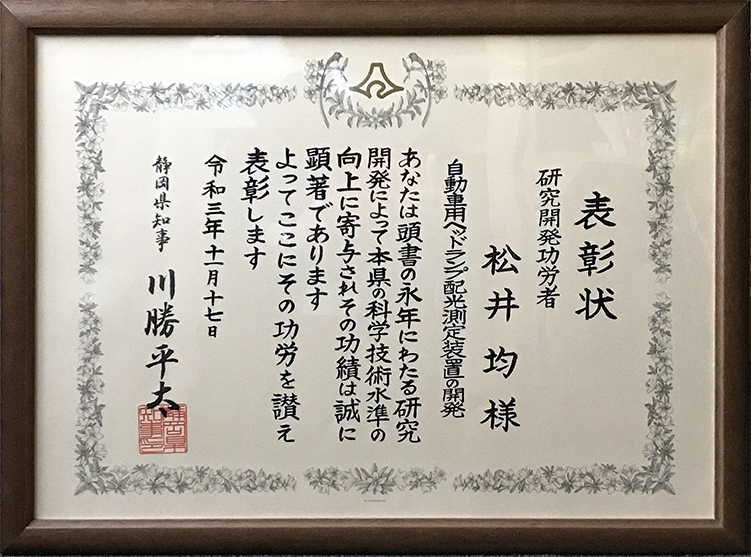 表彰状
研究開発功労者
松井均様
自動車用ヘッドランプ配光測定装置の開発
あなたは頭書の永年にわたる研究
開発によって本県の科学技術水準の
向上に寄与されその功績は誠に
顕著であります
よってここにその功労を讃え
表彰します
令和三年十一月十七日
静岡県知事
川勝平太